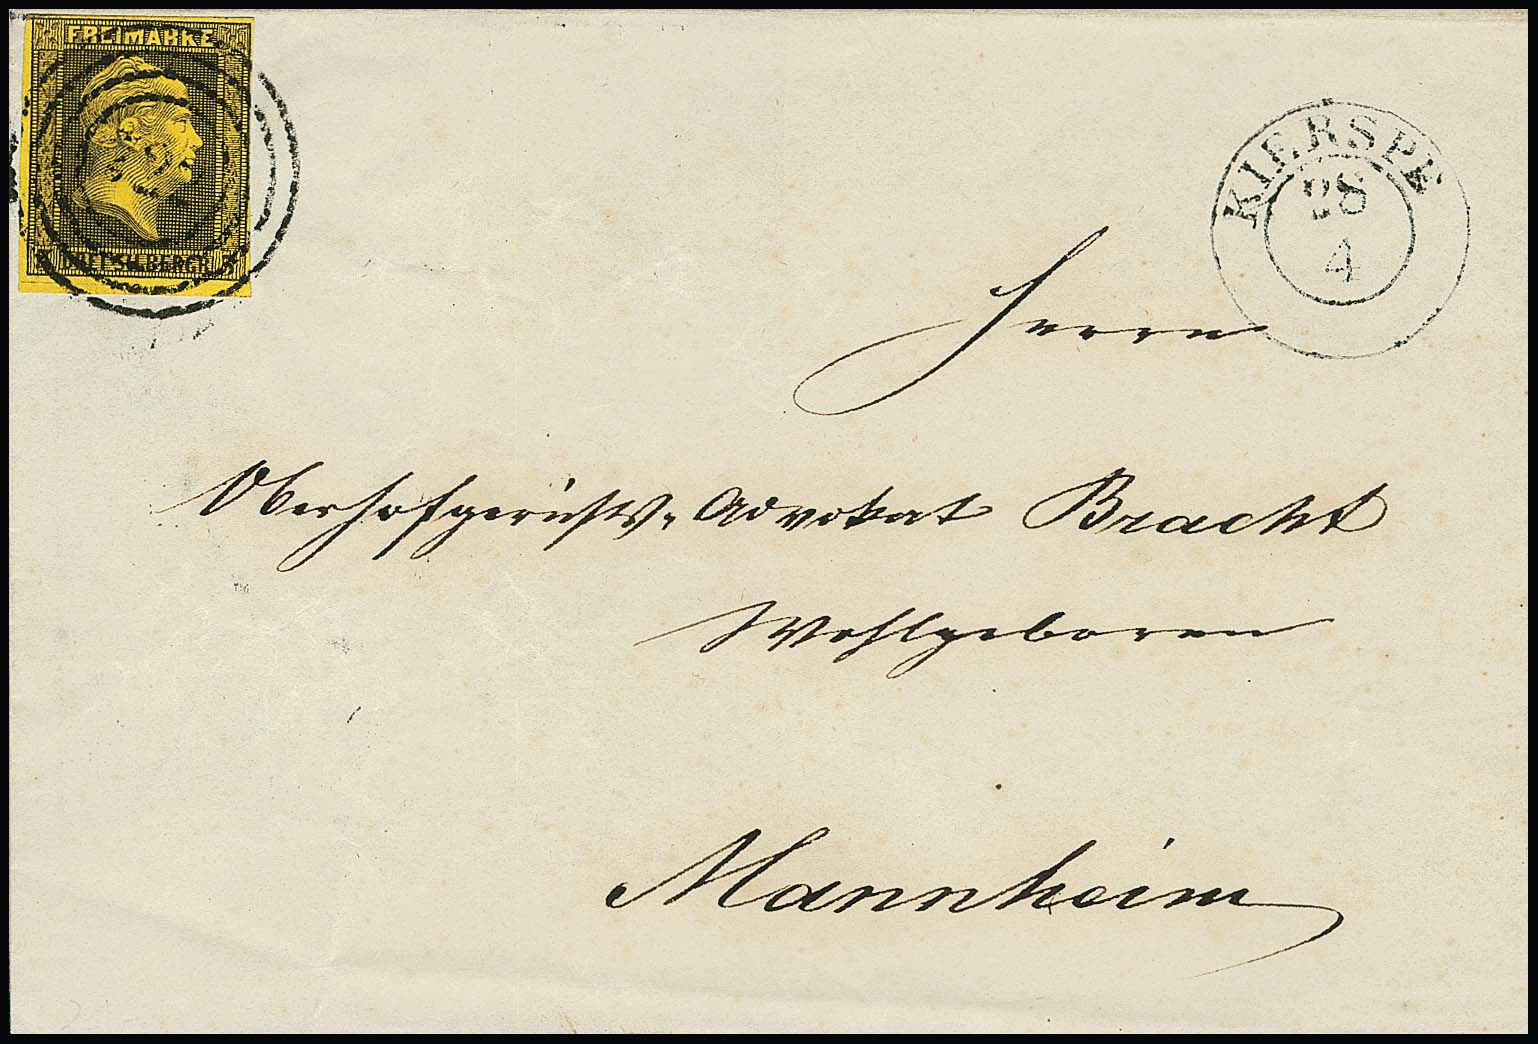 FREIMARKE
DREI SILBERGR.
KIERSPE
28
4
Herrn
Oberhofgerichts-Advokat Bracht
Wohlgeboren
Mannheim